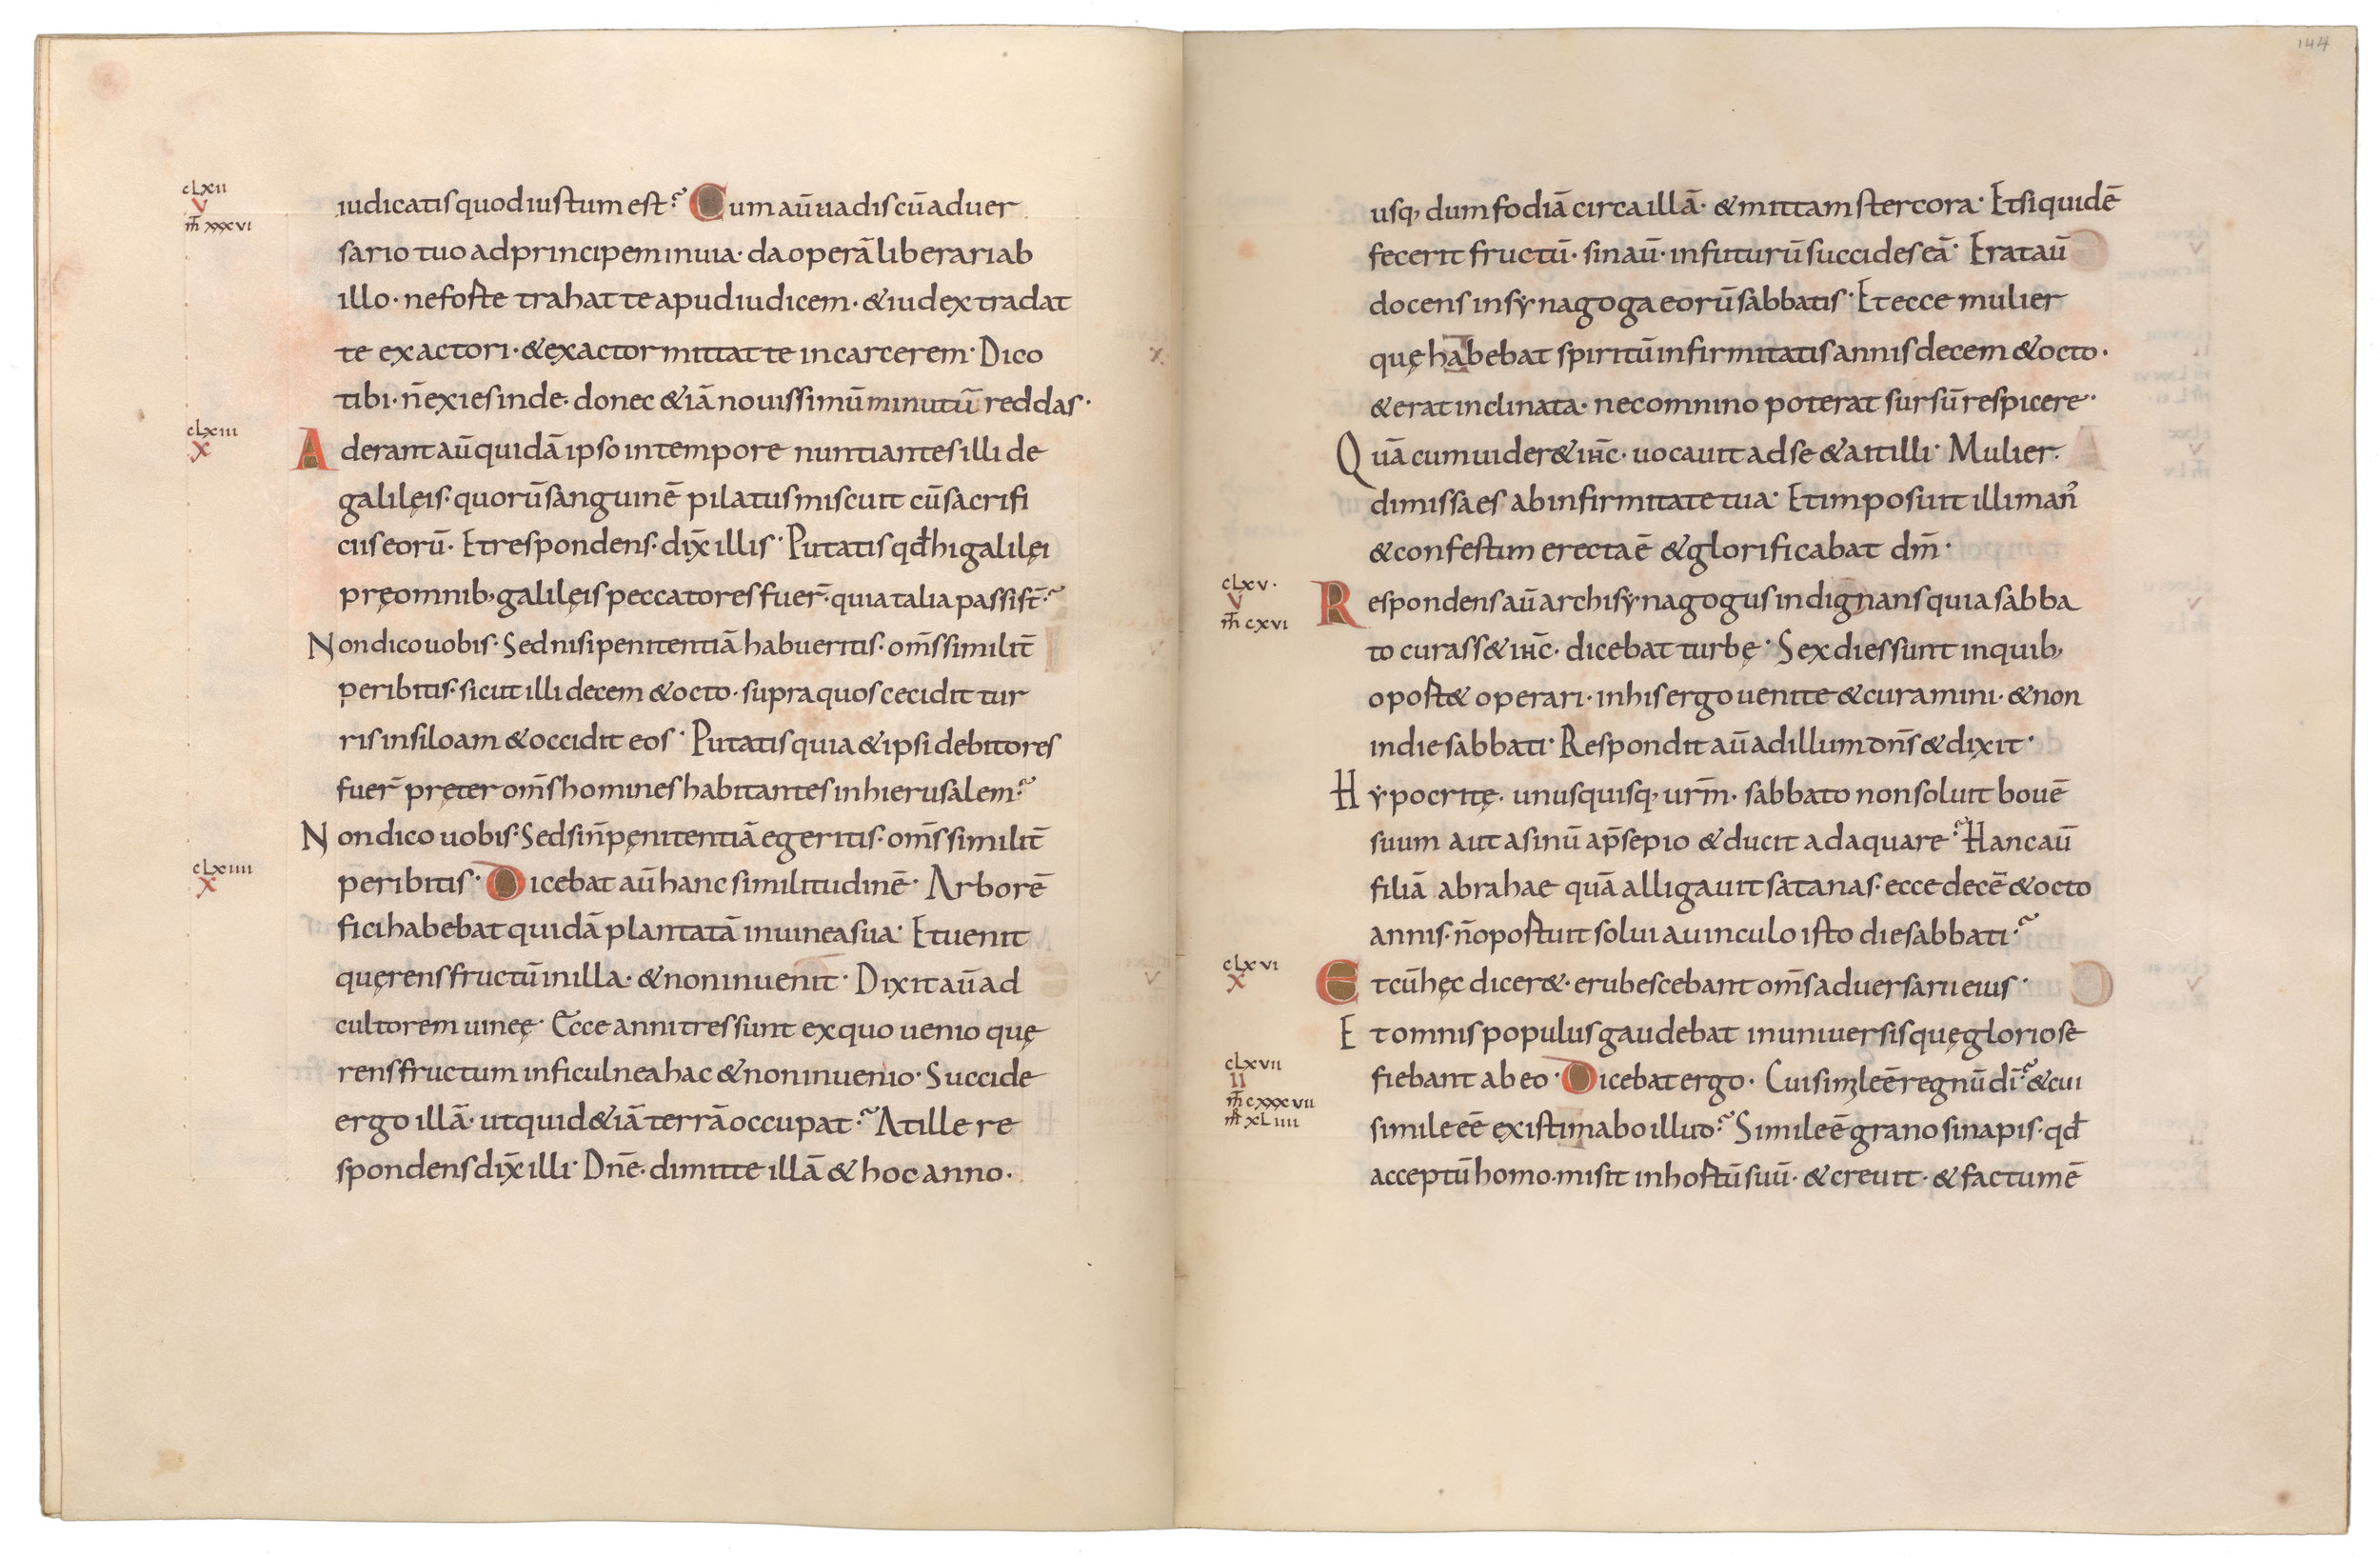 cLxii
v
m̄ xxxvi
iudicatis quod iustum est? Cum aū uadis cū aduer
sario tuo ad principem in uia· da operā liberari ab
illo· ne forte trahat te apud iudicem· & iudex tradat
te exactori· & exactor mittat te in carcerem· Dico
tibi· n̄ exies inde· donec & iā nouissimū minutū reddas·
cLxiii
x
Aderant aū quidā ipso in tempore nuntiantes illi de
galilęis· quorū sanguinē pilatus miscuit cū sacrifi
ciis eorū· Et respondens· dix̄ illis· Putatis qđ hi galilęi
pręomnib; galilęis peccatores fuer̄· quia talia passi st̄?
Non dico uobis· Sed nisi penitentiā habueritis· om̄s similit̄
peribitis· sicut illi decem & octo· supra quos cecidit tur
ris in siloam & occidit eos· Putatis quia & ipsi debitores
fuer̄ pręter om̄s homines habitantes in hierusalem?
Non dico uobis· Sed si n̄ pęnitentiā egeritis· om̄s similit̄
cLxiiii
x
peribitis· Dicebat aū hanc similitudinē· Arborē
fici habebat quidā plantatā in uinea sua· Et uenit
quęrens fructū in illa· & non inuenit· Dixit aū ad
cultorem uineę· Ecce anni tres sunt ex quo uenio quę
rens fructum in ficulnea hac & non inuenio· Succide
ergo illā· ut quid & iā terrā occupat? At ille re
spondens dix̄ illi· Dn̄e· dimitte illā & hoc anno·
144
usq; dum fodiā circa illā· & mittam stercora· Et siquidē
fecerit fructū· sin aū· in futurū succides eā· Erat aū
docens in synagoga eorū sabbatis· Et ecce mulier
quę habebat spiritū infirmitatis annis decem & octo·
& erat inclinata· nec omnino poterat sursū respicere·
Quā cum uider& ih̄c· uocauit ad se & ait illi· Mulier·
dimissa es ab infirmitate tua· Et imposuit illi man᾽
& confestim erecta ē & glorificabat dm̄·
cLxv·
v
m̄ cxvi
Respondens aū archisynagogus indignans quia sabba
to curass& ih̄c· dicebat turbę· Sex dies sunt in quib;
oport& operari· in his ergo uenite & curamini· & non
in die sabbati· Respondit aū ad illum dn̄s & dixit·
Hypocritę· unusquisq; ur̄m· sabbato non soluit bouē
suum aut asinū a p̄sepio & ducit adaquare? Hanc aū
filiā abrahae quā alligauit satanas· ecce decē & octo
annis· n̄ oportuit solui a uinculo isto die sabbati?
cLxvi
x
Et cū hęc dicer&· erubescebant om̄s aduersarii eius·
Et omnis populus gaudebat in uniuersis quę gloriose
cLxvii
ii
m̄ cxxxvii
mr̄ xLiiii
fiebant ab eo· Dicebat ergo· Cui simile ē regnū dī? & cui
simile eē existimabo illud? Simile ē grano sinapis· qđ
acceptū homo· misit in hortū suū· & creuit· & factum ē